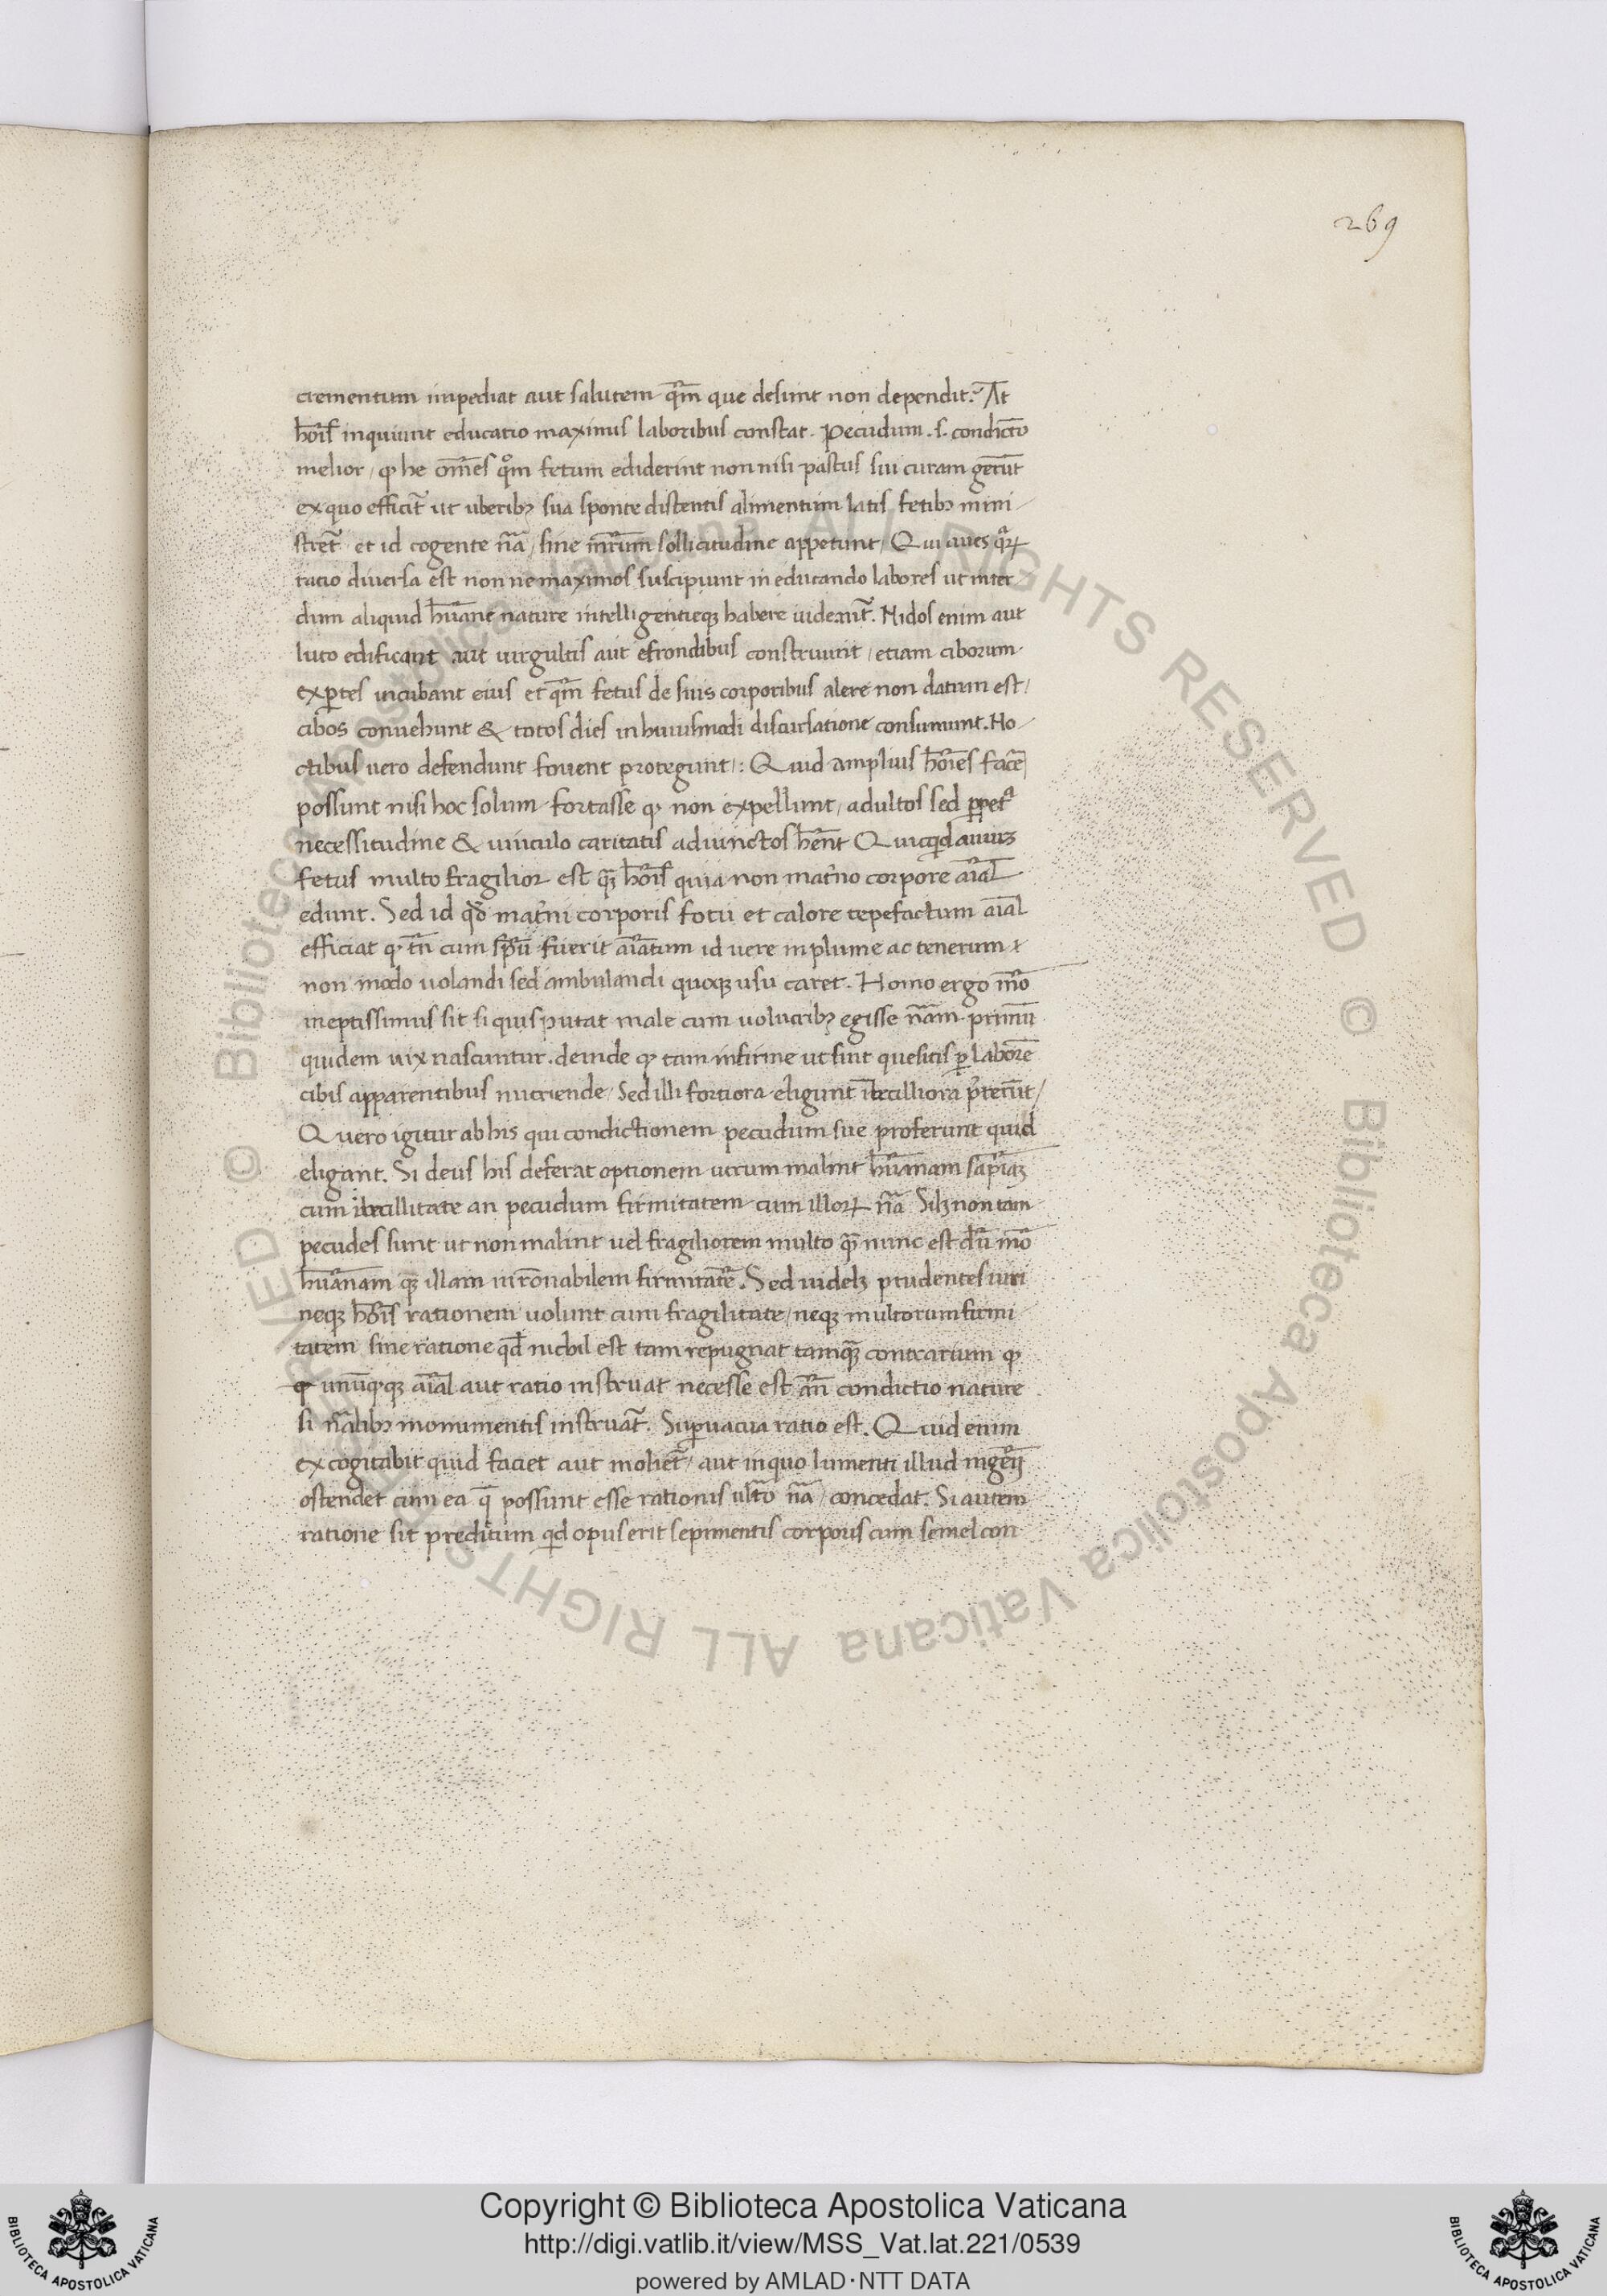 269
crementum impediat aut salutem qm̄ que desunt non dependit. At
hoīs inquiunt educatio maximis laboribus constat. Pecudum .s. condictio
melior, ꝙ he om̄es qm̊ fetum ediderint non nisi pastus sui curam gerūt
ex quo efficit᷑ ut uberibꝫ sua sponte distentis alimentum latis fetibꝫ mini
stret᷑ et id cogente nā̄, sine mr̄um sollicitudine appetunt, Qui aues qꝝ
ratio diuersa est non ne maximos suscipiunt in educando labores ut inter
dum aliquid hūane nature intelligentieqꝫ habere uideant᷑. Nidos enim aut
luto edificant aut uirgultis aut efrondibus construunt, etiam ciborum
exp̄tes incubant eius et qm̄ fetus de suis corporibus alere non datum est,
cibos conuehunt & totos dies in huiusmodi discursatione consumunt. No
ctibus uero defendunt fouent protegunt: Quid amplius hoīes facē
possunt nisi hoc solum fortasse ꝙ non expellunt, adultos sed ꝑpetᵃ
necessitudine & uinculo caritatis adiunctos hēnt Quicqd auiuꝫ
fetus multo fragilior est qꝫ hoīs quia non mat̓no corpore aīal
edunt. Sed id qd̄ mat̓ni corporis fotu et calore tepefactum aīal
efficiat ꝙ tn̄ cum spū fuerit aīatum id uere inplume ac tenerum
non modo uolandi sed ambulandi quoqꝫ usu caret. Homo ergo mō
ineptissimus sit si quis putat male cum uolucribꝫ egisse nām primū
quidem uix nascuntur. deinde ꝙ tam infirme ut sint quesitis ꝑ laborē
cibis apparentibus nutriende, Sed illi fortiora eligunt ībecilliora p̄tereūt,
Quero igitur ab his qui condictionem pecudum sue proferunt quid
eligant. Si deus his deferat optionem utrum malint hūmam sapīaꝫ
cum ībecillitate an pecudum firmitatem cum illoꝝ nā Silꝫ non tam
pecudes sunt ut non malint uel fragiliorem multo qꝫ nunc est dū mō
hūanam qꝫ illam inrōnabilem firmitatē. Sed uidelꝫ prudentes uiri
neqꝫ hoīs rationem uolunt cum fragilitate, neqꝫ multorum firmi
tatem sine ratione qd̄ nichil est tam repugnat tamqꝫ contrarium ꝙ
ꝙ unūqꝙqꝫ aīal aut ratio instruat necesse est aūt condictio nature
si nālibꝫ monumentis instruat᷑. Suꝑuacua ratio est. Quid enim
excogitabit quid faciet aut moliet᷑, aut in quo lumenti illud ingenii
ostendet cum ea q̄ possunt esse rationis ult̄o nā, concedat. Si autem
ratione sit preditum qd opus erit sepimentis corporis cum semel con
Copyright © Biblioteca Apostolica Vaticana
http://digi.vatlib.it/view/MSS_Vat.lat.221/0539
powered by AMLAD·NTT DATA
BIBLIOTECA APOSTOLICA VATICANA
BIBLIOTECA APOSTOLICA VATICANA
© Biblioteca Apostolica Vaticana ALL RIGHTS RESERVED © Biblioteca Apostolica Vaticana ALL RIGHTS RESERVED